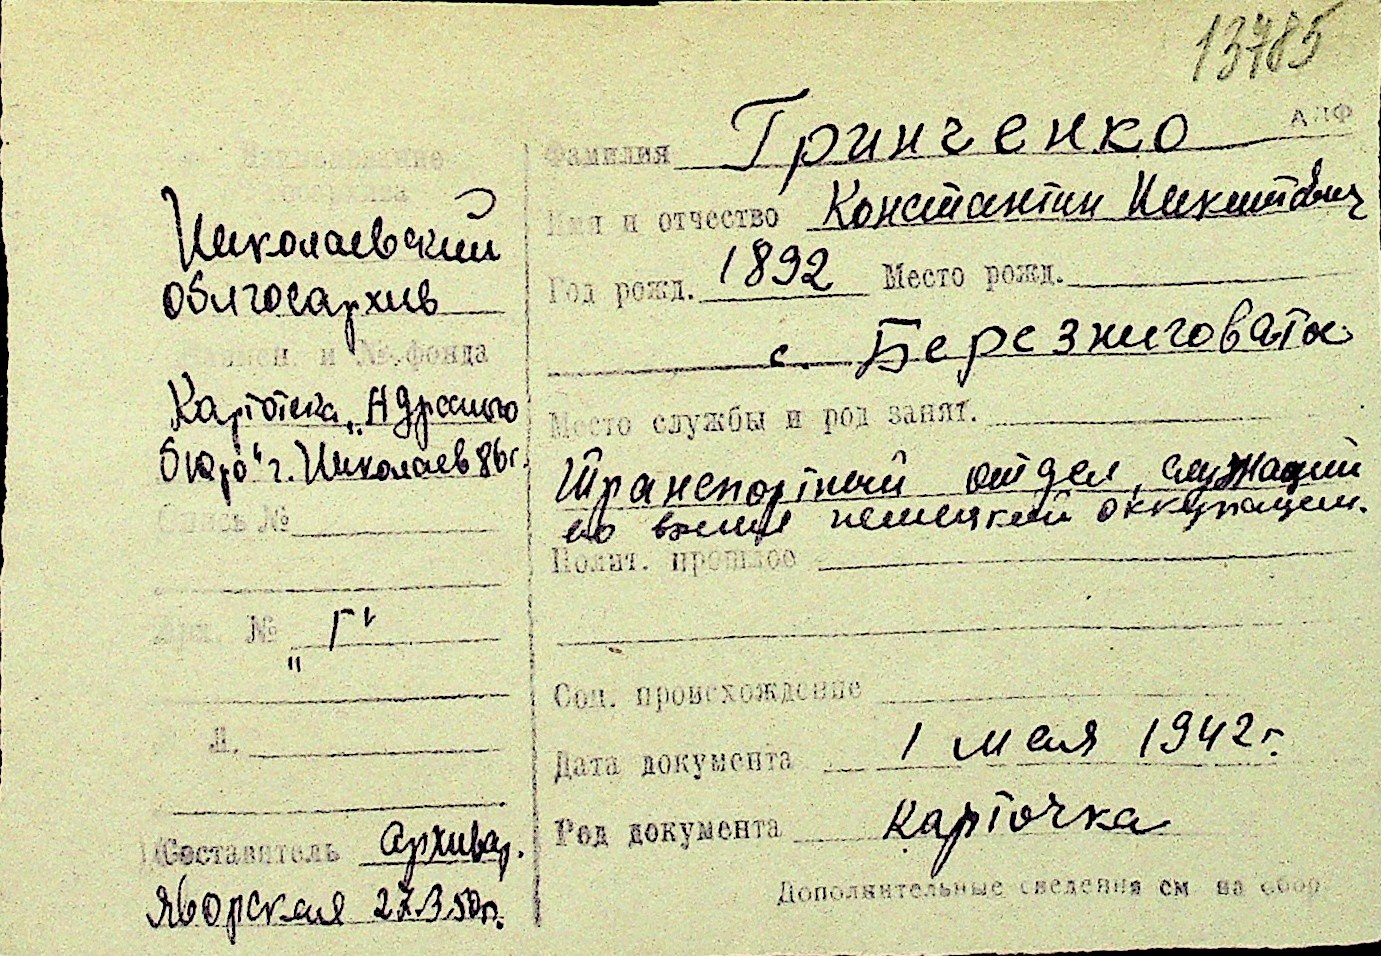 13785
АЛФ
Фамилия Гринченко
Имя и отчество Константин Никитович
Год рожд. 1892 Место рожд.
с. Березниговата
Место службы и род занят.
Транспортный отдел, служащий
во время немецкой оккупации.
Полит. прошлое
Соц. происхождение
Дата документа 1 мая 1942 г.
Род документа карточка
Дополнительные сведения см на обор
Наименование
госархива
Николаевский
облгосархив
и № фонда
Картотека „Адресного
бюро" г. Николаев 86 г.
Опись №
№ „Г"
Л.
Составитель архивар.
Яворская 27.3.50 г.